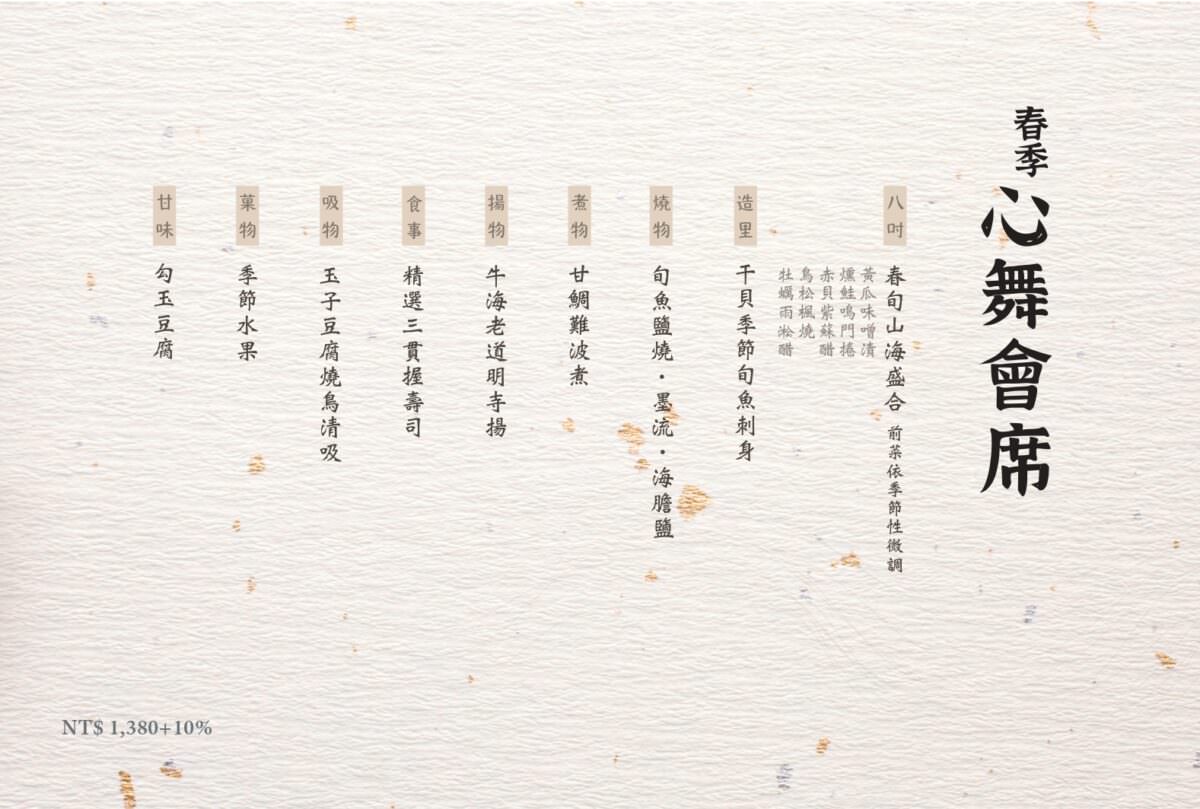 春季
心舞會席
八吋
春旬山海盛合 前菜依季節性微調
黃瓜味噌漬
燻鮭鳴門捲
赤貝紫蘇醋
鳥松楓燒
牡蠣雨淞醋
造里
干貝季節旬魚刺身
燒物
旬魚鹽燒・墨流・海膽鹽
煮物
甘鯛難波煮
揚物
牛海老道明寺揚
食事
精選三貫握壽司
吸物
玉子豆腐燒鳥清吸
菓物
季節水果
甘味
勾玉豆腐
NT$ 1,380+10%